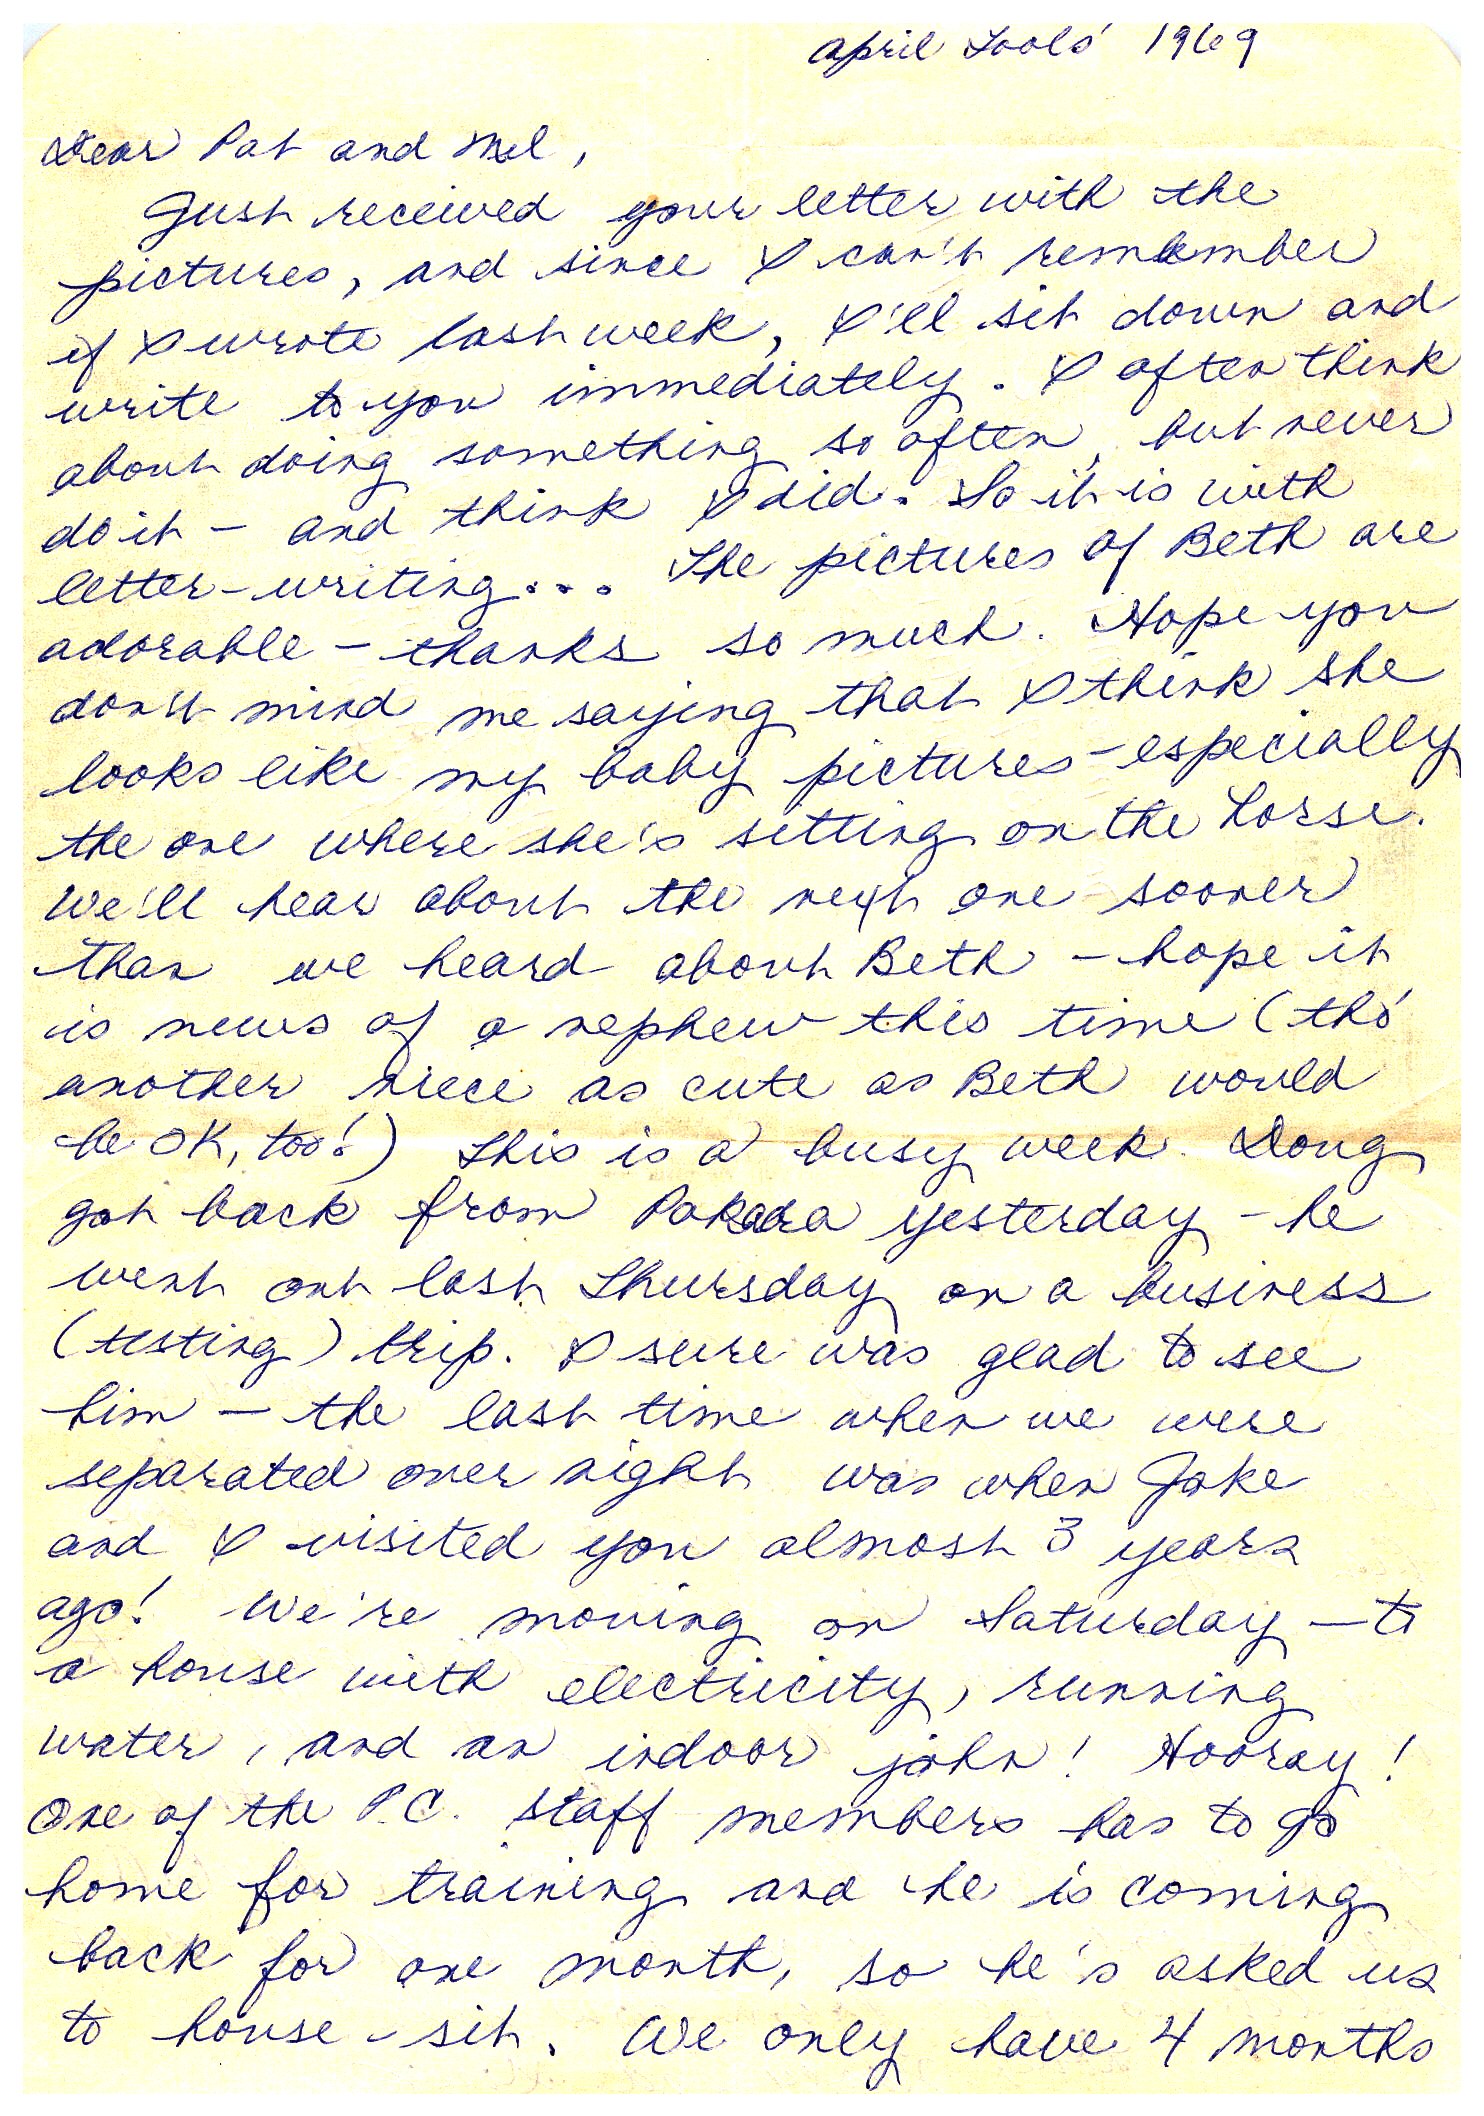 April Fools' 1969
Dear Pat and Mel,
Just received your letter with the
pictures, and since I can't remember
if I wrote last week, I'll sit down and
write to you immediately. I often think
about doing something so often, but never
do it - and think I did. So it is with
letter-writing... The pictures of Beth are
adorable - thanks so much. Hope you
don't mind me saying that I think she
looks like my baby pictures - especially
the one where she's sitting on the horse.
We'll hear about the next one sooner
than we heard about Beth - hope it
is news of a nephew this time (tho'
another niece as cute as Beth would
be OK, too!) This is a busy week. Doug
got back from yesterday - he
went out last Thursday on a business
(testing) trip. I sure was glad to see
him - the last time when we were
separated over night was when Jake
and I visited you almost 3 years
ago! We're moving on Saturday - to
a house with electricity, running
water, and an indoor john! Hooray!
One of the P.C. staff members has to go
home for training and he is coming
back for one month, so he's asked us
to house-sit. We only have 4 months